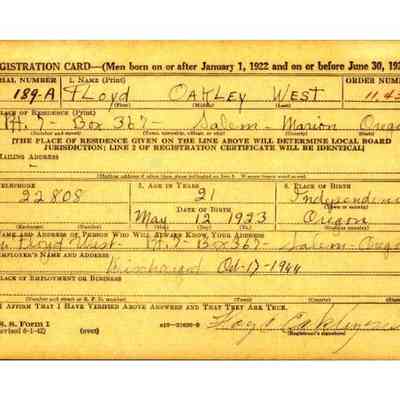 EGISTRATION CARD—(Men born on or after January 1, 1922 and on or before June 30, 192
RIAL NUMBER 1. NAME (Print) ORDER NUM
189-A FLOYD OAKLEY WEST 11,43
(First) (Middle) (Last)
PLACE OF RESIDENCE (Print)
Rt. 7- Box 367- Salem- Marion Orego
(Number and street) (Town, township, village, or city) (County) (State)
[THE PLACE OF RESIDENCE GIVEN ON THE LINE ABOVE WILL DETERMINE LOCAL BOARD
JURISDICTION; LINE 2 OF REGISTRATION CERTIFICATE WILL BE IDENTICAL]
AILING ADDRESS
(Mailing address if other than place indicated on line 2. If same insert word same)
ELEPHONE 5. AGE IN YEARS 6. PLACE OF BIRTH
22808 21 Independenc
DATE OF BIRTH
May 12 1923 Oregon
(Exchange) (Number) (Mo.) (Day) (Yr.) (State or country)
NAME AND ADDRESS OF PERSON WHO WILL ALWAYS KNOW YOUR ADDRESS
Floyd West- Rt. 7- Box 367- Salem- Orego
EMPLOYER'S NAME AND ADDRESS
Discharged Oct-17-1944
PLACE OF EMPLOYMENT OR BUSINESS
(Number and street or R. F. D. number) (Town) (County) (State)
I AFFIRM THAT I HAVE VERIFIED ABOVE ANSWERS AND THAT THEY ARE TRUE.
S. S. Form 1
evised 6-1-42) (over) (Registrant's signature)
Floyd Oakley